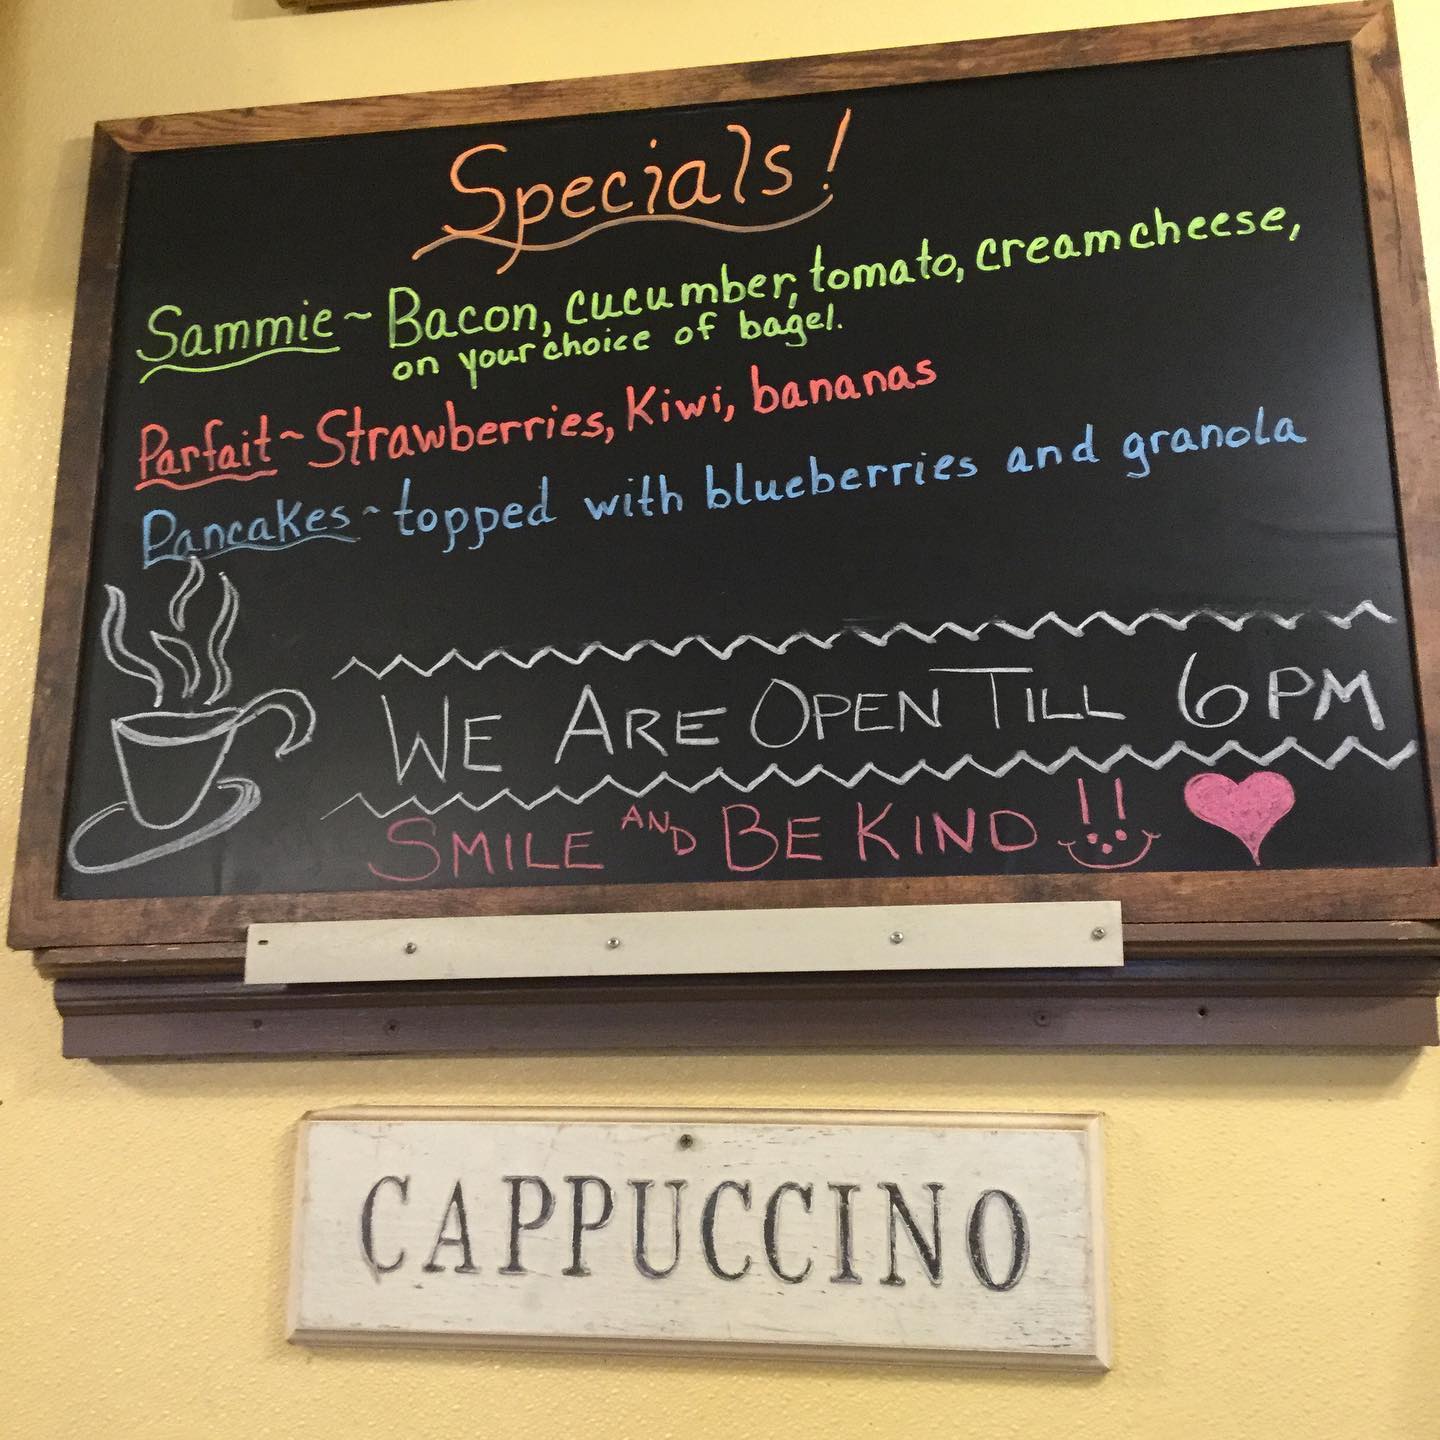 Specials!
Sammie~ Bacon, cucumber, tomato, creamcheese,
on your choice of bagel.
Parfait~ Strawberries, Kiwi, bananas
Pancakes~ topped with blueberries and granola
WE ARE OPEN TILL 6PM
SMILE AND BE KIND!!
CAPPUCCINO